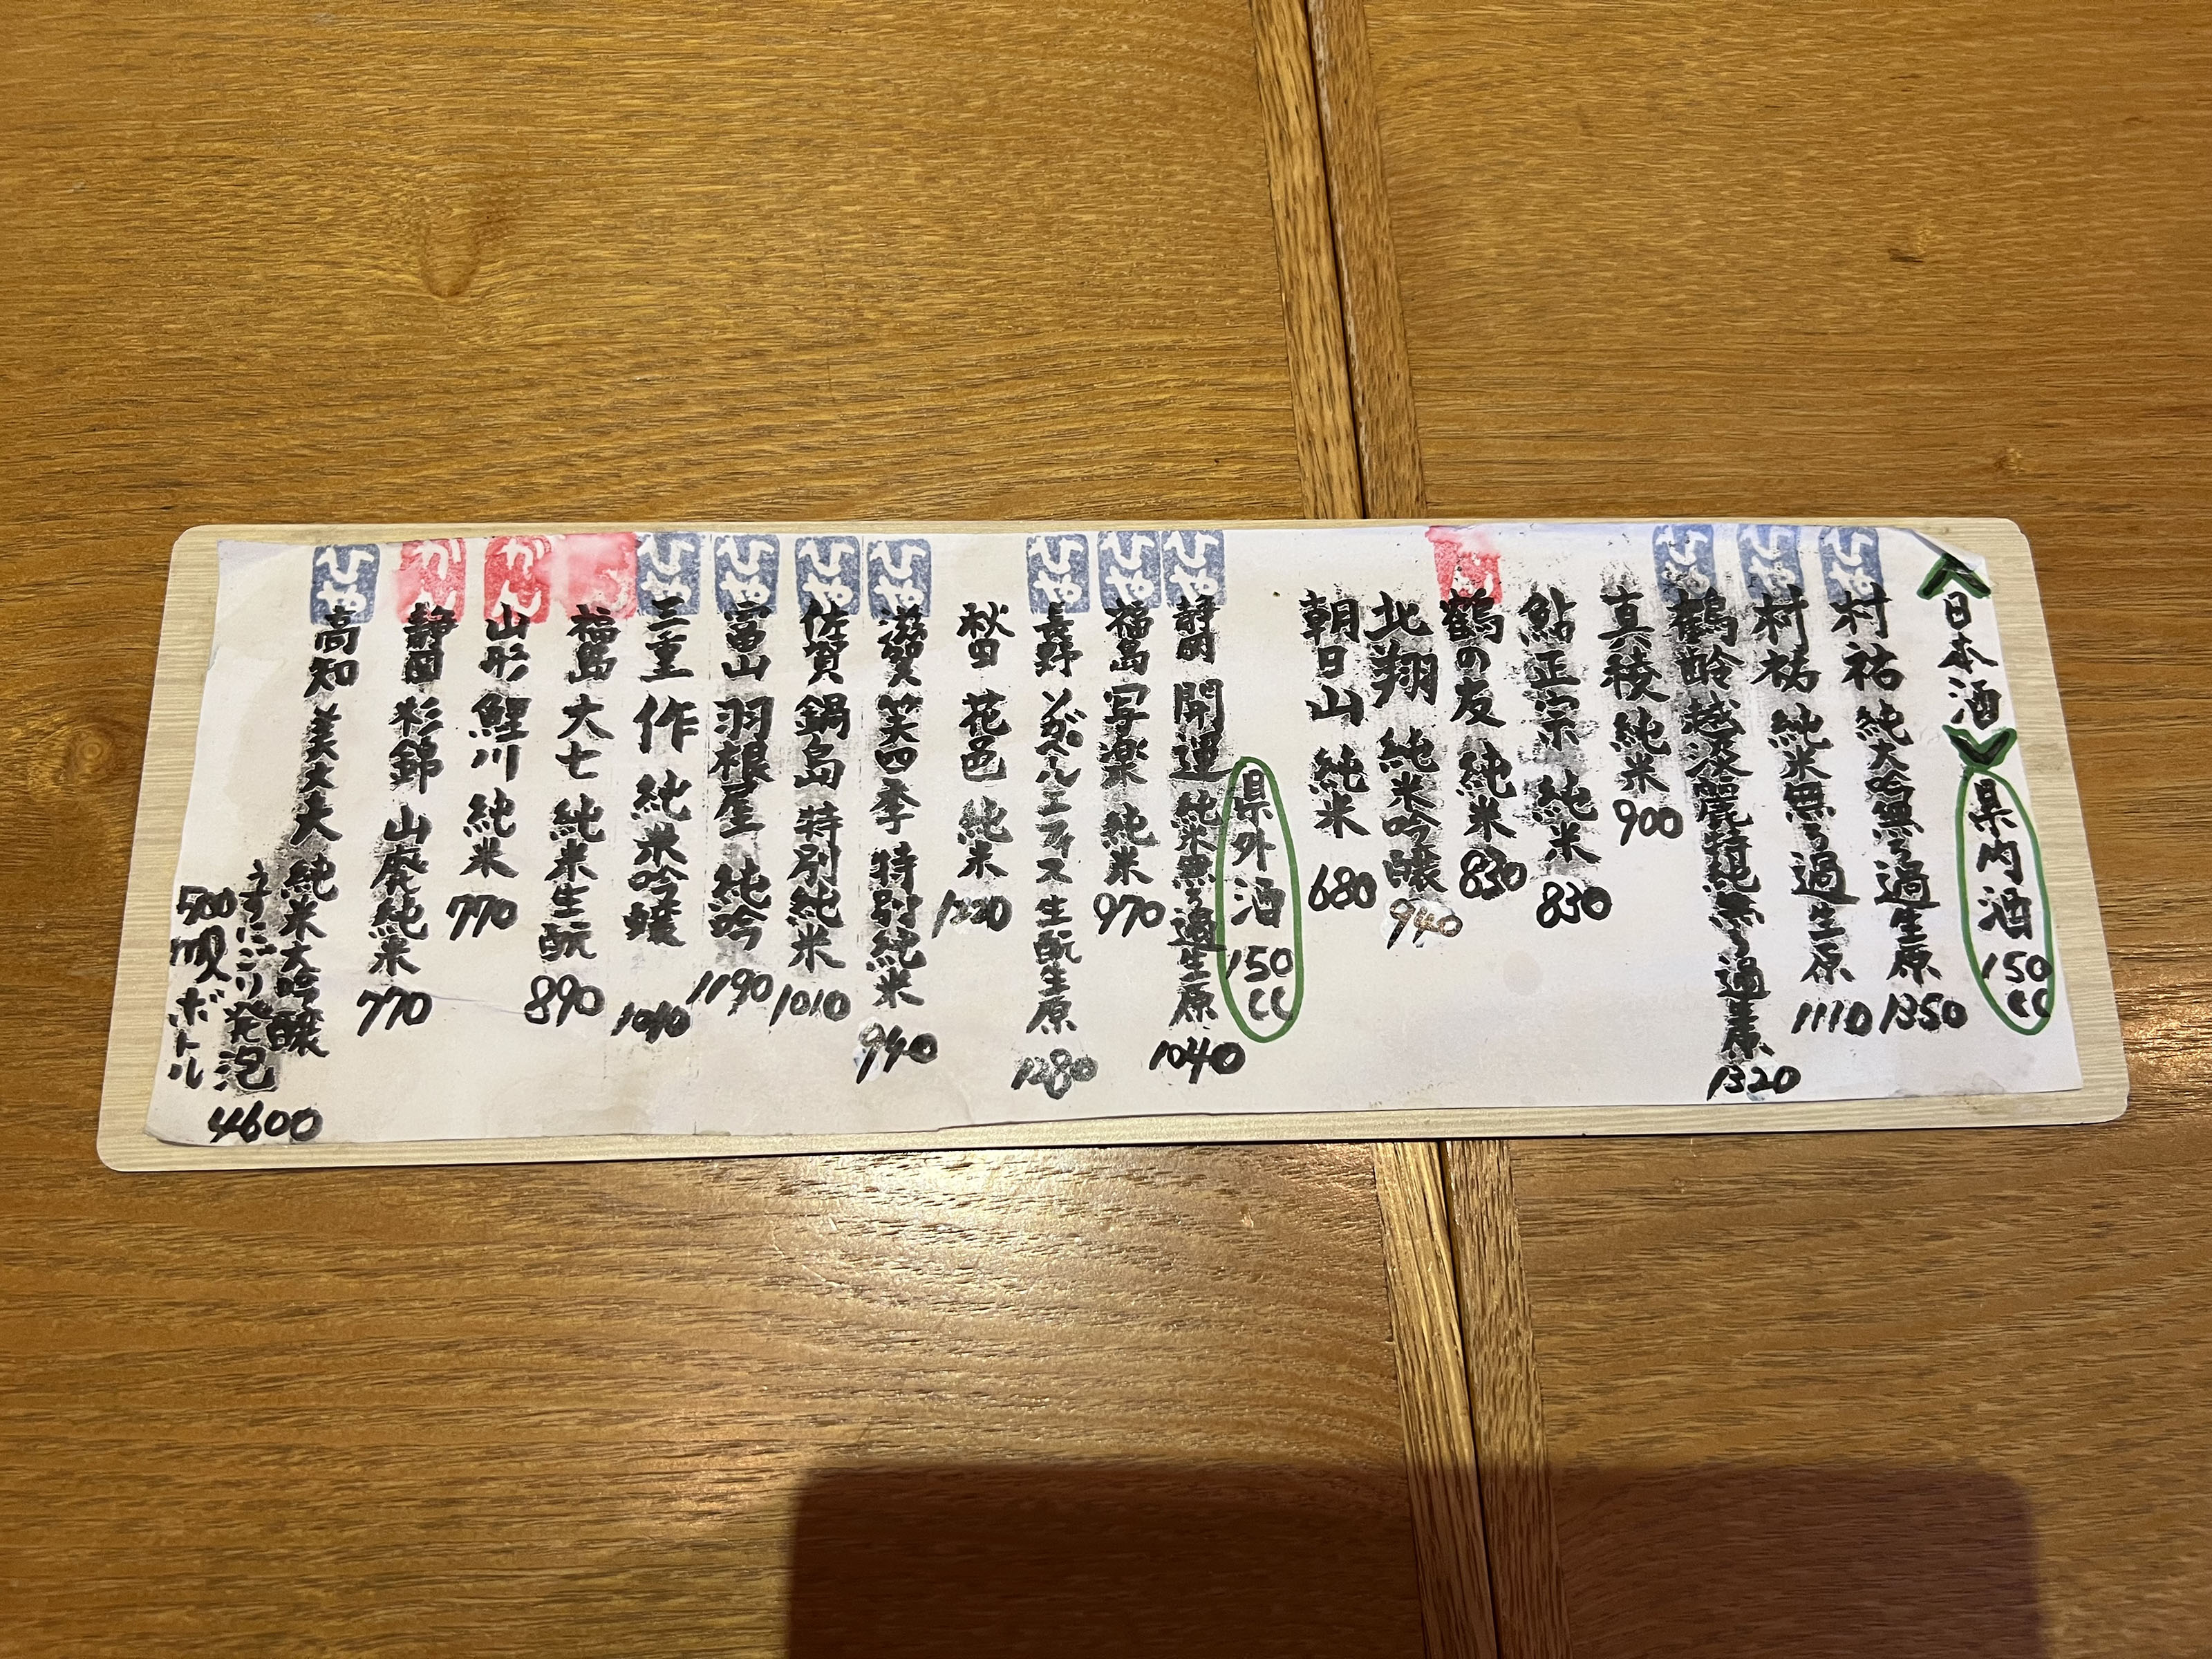 日本酒 県内酒 150cc
村祐 純大吟無ろ過生原 1350
村祐 純米無ろ過生原 1110
鶴齢 越淡麗特純無ろ過生原 1320
真稜 純米 900
鮎正宗 純米 830
鶴の友 純米 830
北翔 純米吟醸 940
朝日山 純米 680
県外酒 150cc
静岡 開運 純米無ろ過生原 1040
福島 写楽 純米 970
長野 ソガペールエフィス 生酛生原 1280
秋田 花邑 純米
滋賀 笑四季 特別純米 940
佐賀 鍋島 特別純米 1010
富山 羽根屋 純吟 1190
三重 作 純米吟醸
福島 大七 純米生酛 890
山形 鯉川 純米 770
静岡 杉錦 山廃純米 770
高知 美丈夫 純米大吟醸
うすにごり発泡
500mlボトル 4600
ひや
ひや
ひや
ひや
ひや
ひや
ひや
ひや
ひや
ひや
かん
かん
ひや